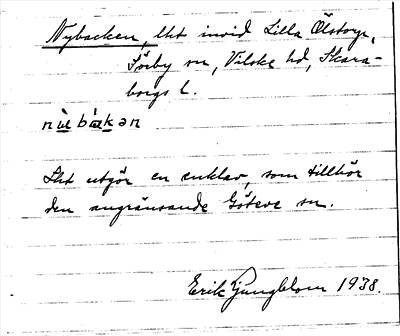 Nybacken, lht invid Lilla Ölstorp,
Sörby sn, Vilske hd, Skara-
borgs l.
nu̇̀bȧ̀kən
Lht utgör en enklav, som tillhör
den angränsande Göteve sn.
Erik Ljungblom 1938.